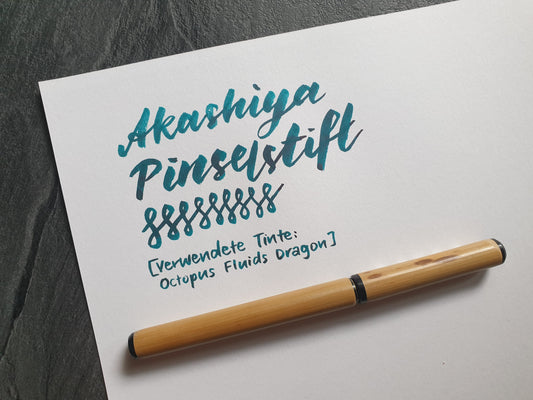 Akashiya
Pinselstift
[Verwendete Tinte:
Octopus Fluids Dragon]